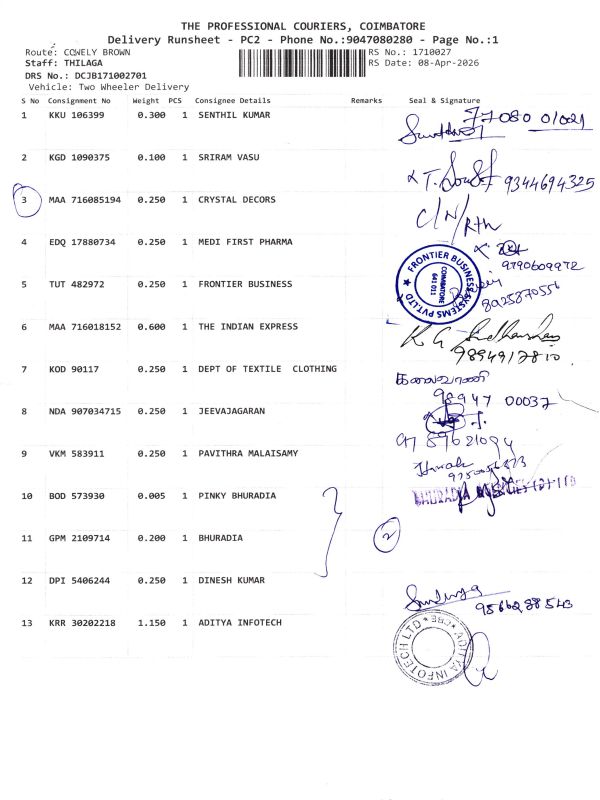 THE PROFESSIONAL COURIERS, COIMBATORE
Delivery Runsheet - PC2 - Phone No.:9047080280 - Page No.:1
Route: COWELY BROWN RS No.: 1710027
Staff: THILAGA RS Date: 08-Apr-2026
DRS No.: DCJB171002701
Vehicle: Two Wheeler Delivery
S No Consignment No Weight PCS Consignee Details Remarks Seal & Signature
1 KKU 106399 0.300 1 SENTHIL KUMAR
77080 01021
2 KGD 1090375 0.100 1 SRIRAM VASU
9344694325
3 MAA 716085194 0.250 1 CRYSTAL DECORS
C/N/Rtn
4 EDQ 17880734 0.250 1 MEDI FIRST PHARMA
9790609972
FRONTIER BUSINESS SYSTEMS PVT.LTD
COIMBATORE
641 011
5 TUT 482972 0.250 1 FRONTIER BUSINESS
8925870556
6 MAA 716018152 0.600 1 THE INDIAN EXPRESS
9894917810
7 KOD 90117 0.250 1 DEPT OF TEXTILE CLOTHING
கலைவாணி
98947 00037
8 NDA 907034715 0.250 1 JEEVAJAGARAN
9789621094
9 VKM 583911 0.250 1 PAVITHRA MALAISAMY
10 BOD 573930 0.005 1 PINKY BHURADIA
BHURADIA AGENCIES (P) LTD
11 GPM 2109714 0.200 1 BHURADIA
2
12 DPI 5406244 0.250 1 DINESH KUMAR
9566298543
13 KRR 30202218 1.150 1 ADITYA INFOTECH
ADITYA INFOTECH LTD
CBE